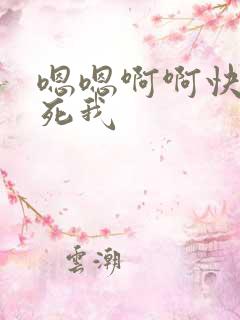 嗯嗯啊啊快
死我
雲潮